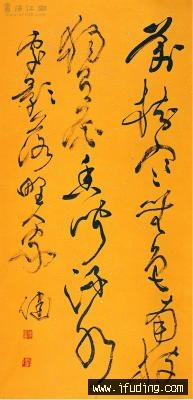 萬樹寒無色南枝
獨有花香聞流水
處影落野人家
www.ifuding.com